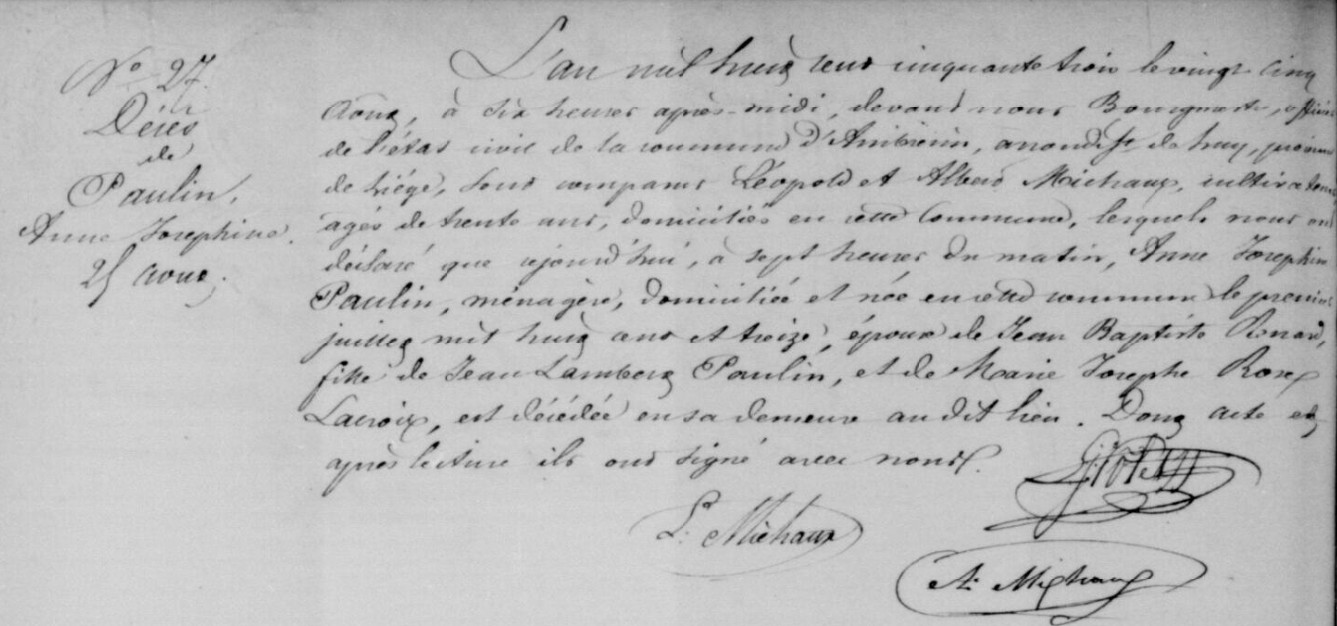 N° 27.
Décès
de
Paulin,
Anne Josephine.
25 aout.
L'an mil huit cent cinquante trois le vingt cinq
aout, à six heures après-midi, devant nous Bourgmestre, officier
de l'état civil de la commune d'Ambresin, arrondist. de huy, province
de Liége, sont comparus Léopold et Albert Michaux, cultivateurs
agés de trente ans, domiciliés en cette Commune, lesquels nous ont
déclaré que cejourd'hui, à sept heures du matin, Anne Josephine
Paulin, ménagère, domiciliée et née en cette commune le premier
juillet mil huit cent et treize, épouse de Jean Baptiste Renard,
fille de Jean Lambert Paulin, et de Marie Josephe Rose
Lacroix, est décédée en sa demeure au dit lieu. Dont acte et
après lecture ils ont signé avec nous.
L: Michaux
A: Michaux